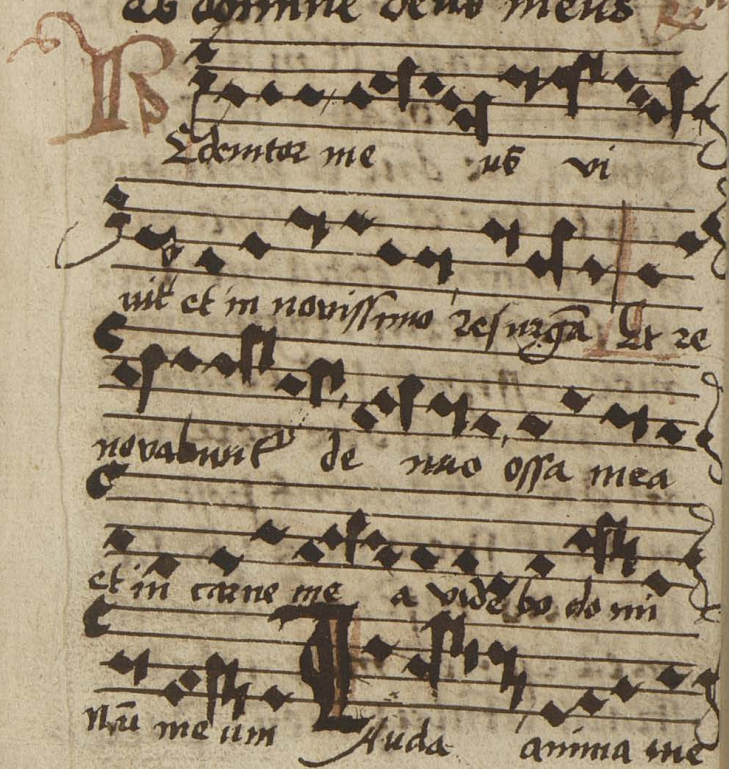 eb domine deus meus
REdemtor me us vi
vit et in novissimo resurga Et re
novabunt de nuo ossa mea
et in carne me a vide bo do mi
nū me um Lauda anima me